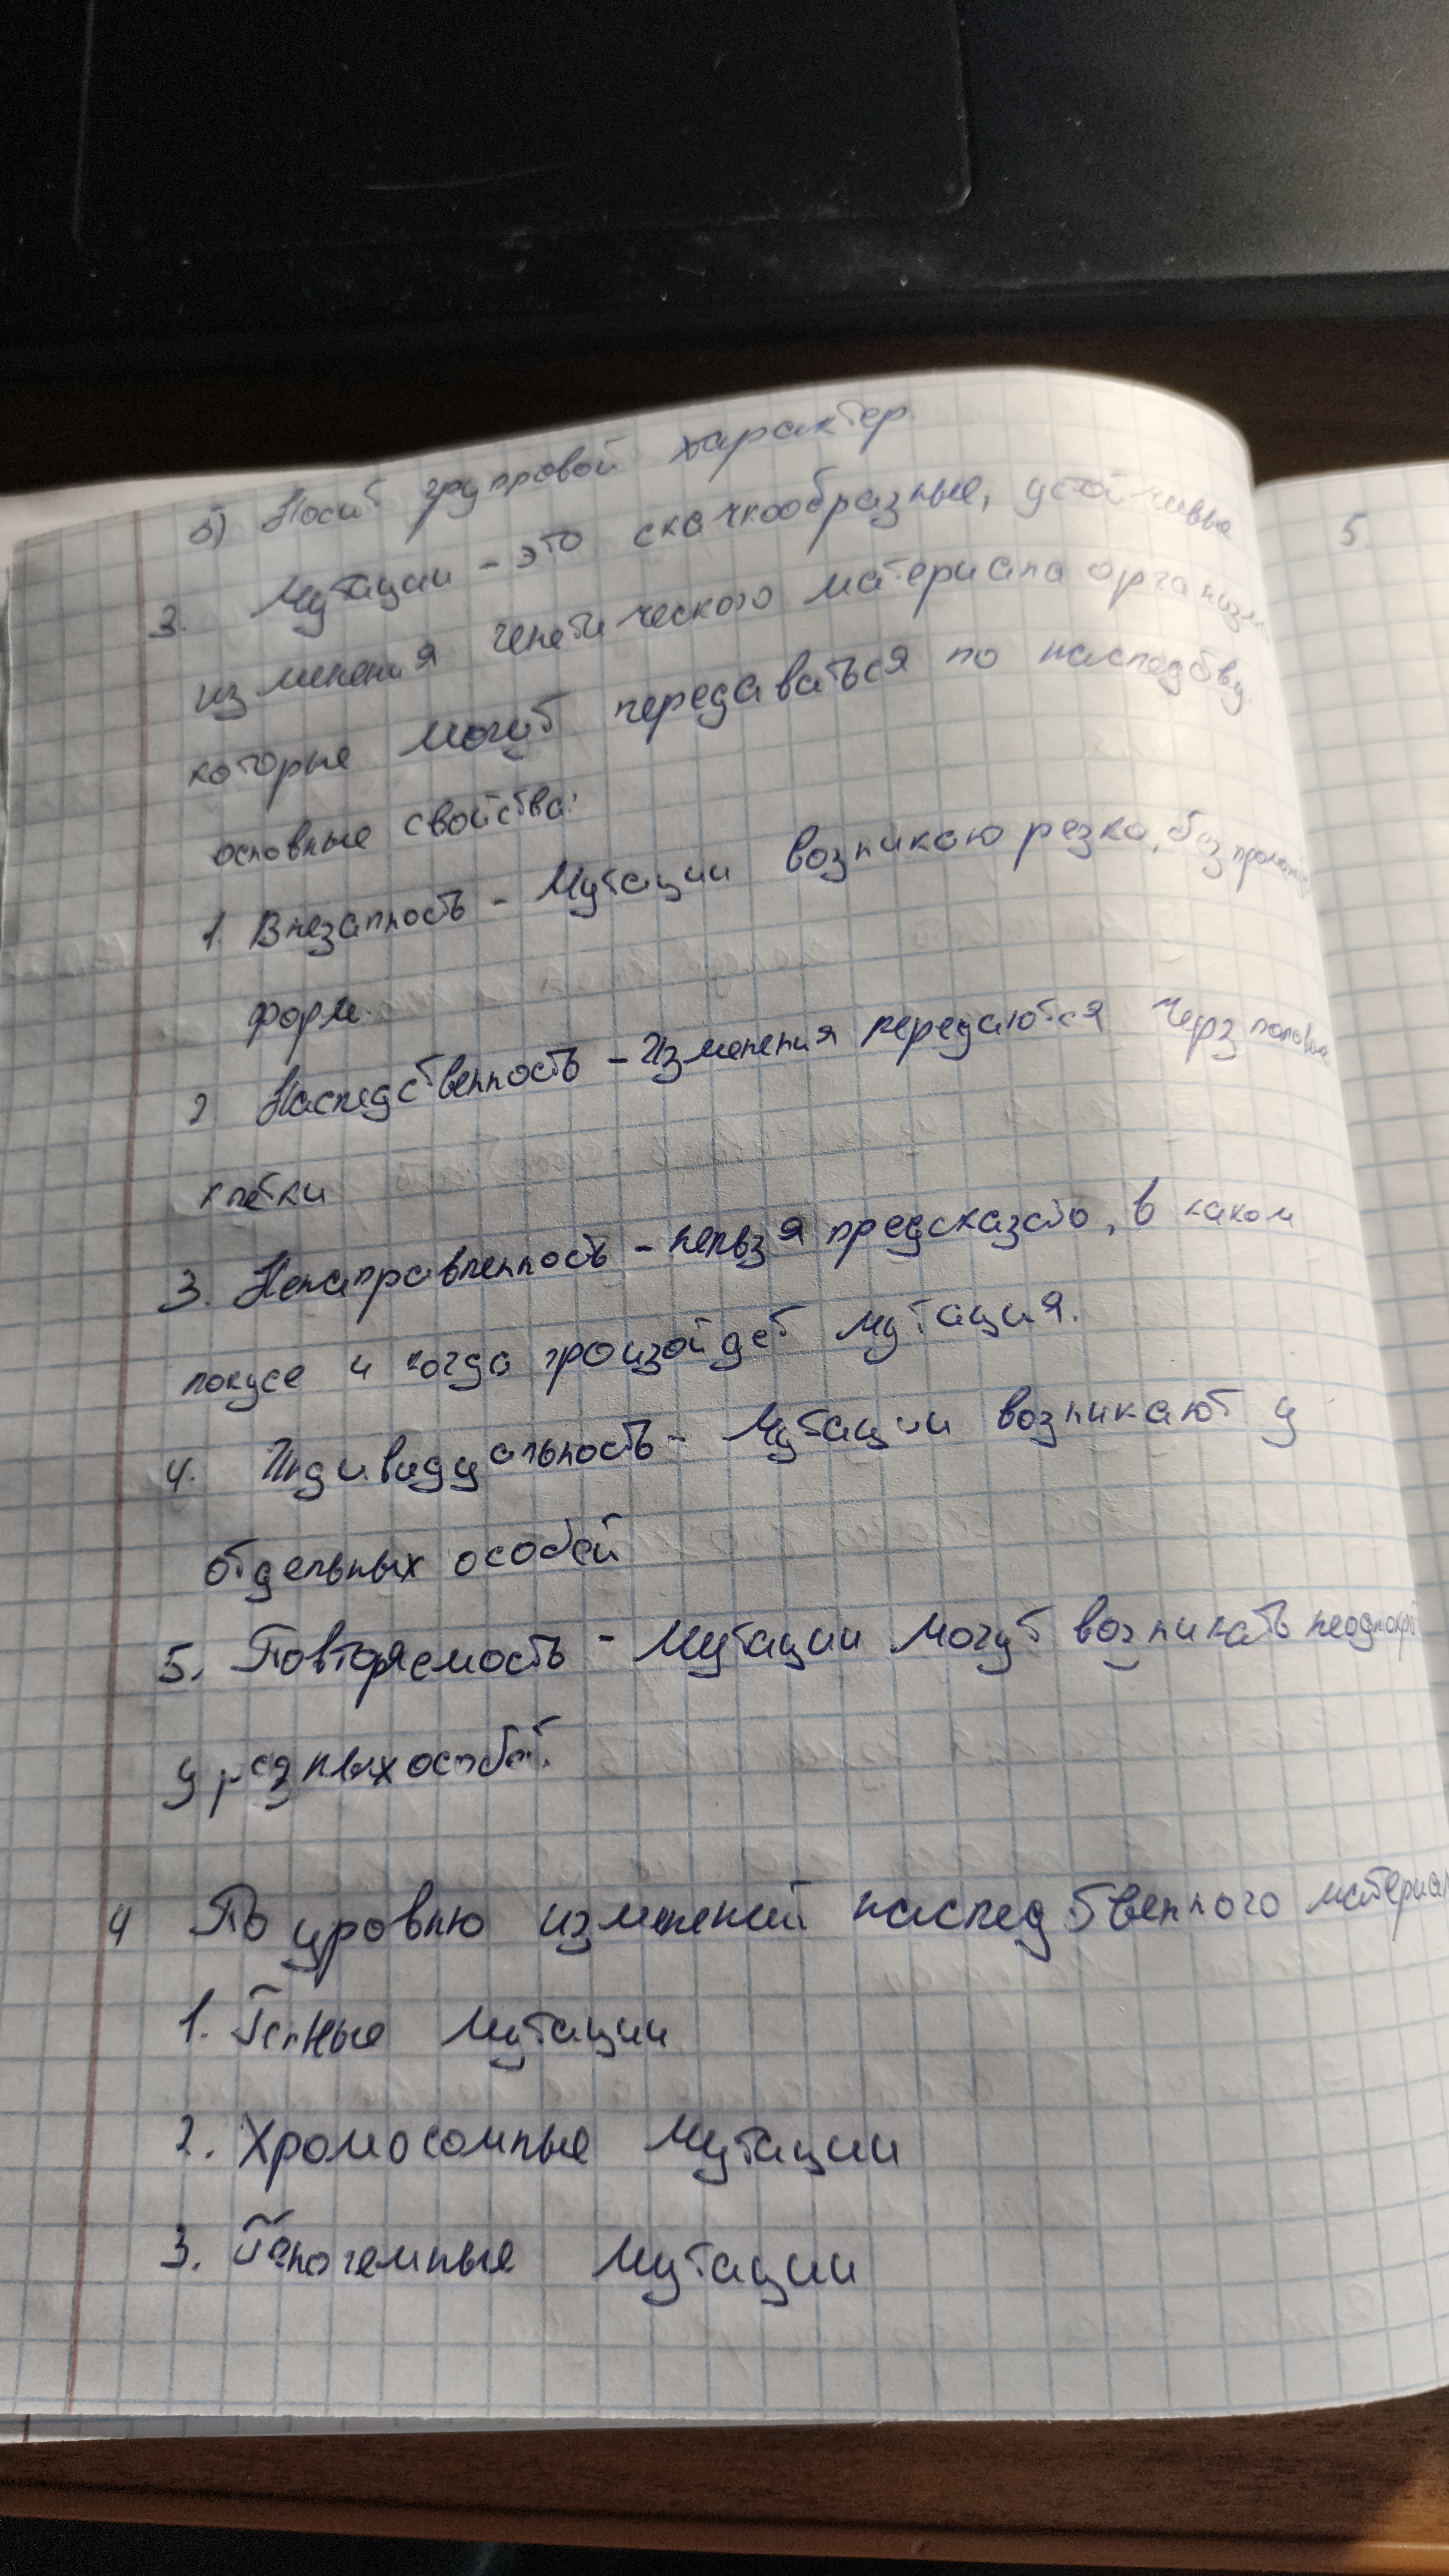 5) Носит групповой характер
3. Мутации - это скачкообразные, устойчивые
изменения генетического материала организма
которые могут передаваться по наследству.
основные свойства:
1. Внезапность - Мутации возникаю резко, без
форм.
2 Наследственность - Изменения передаются через половые
клетки
3. Ненаправленность - нельзя предсказать, в каком
локусе и когда произойдет мутация.
4. Индивидуальность - Мутации возникают у
отдельных особей
5. Повторяемость - Мутации могут возникать неоднокр
у разных особей.
4 По уровню изменений наследственного материал
1. Генные мутации
2. Хромосомные мутации
3. Геногемные мутации
5.